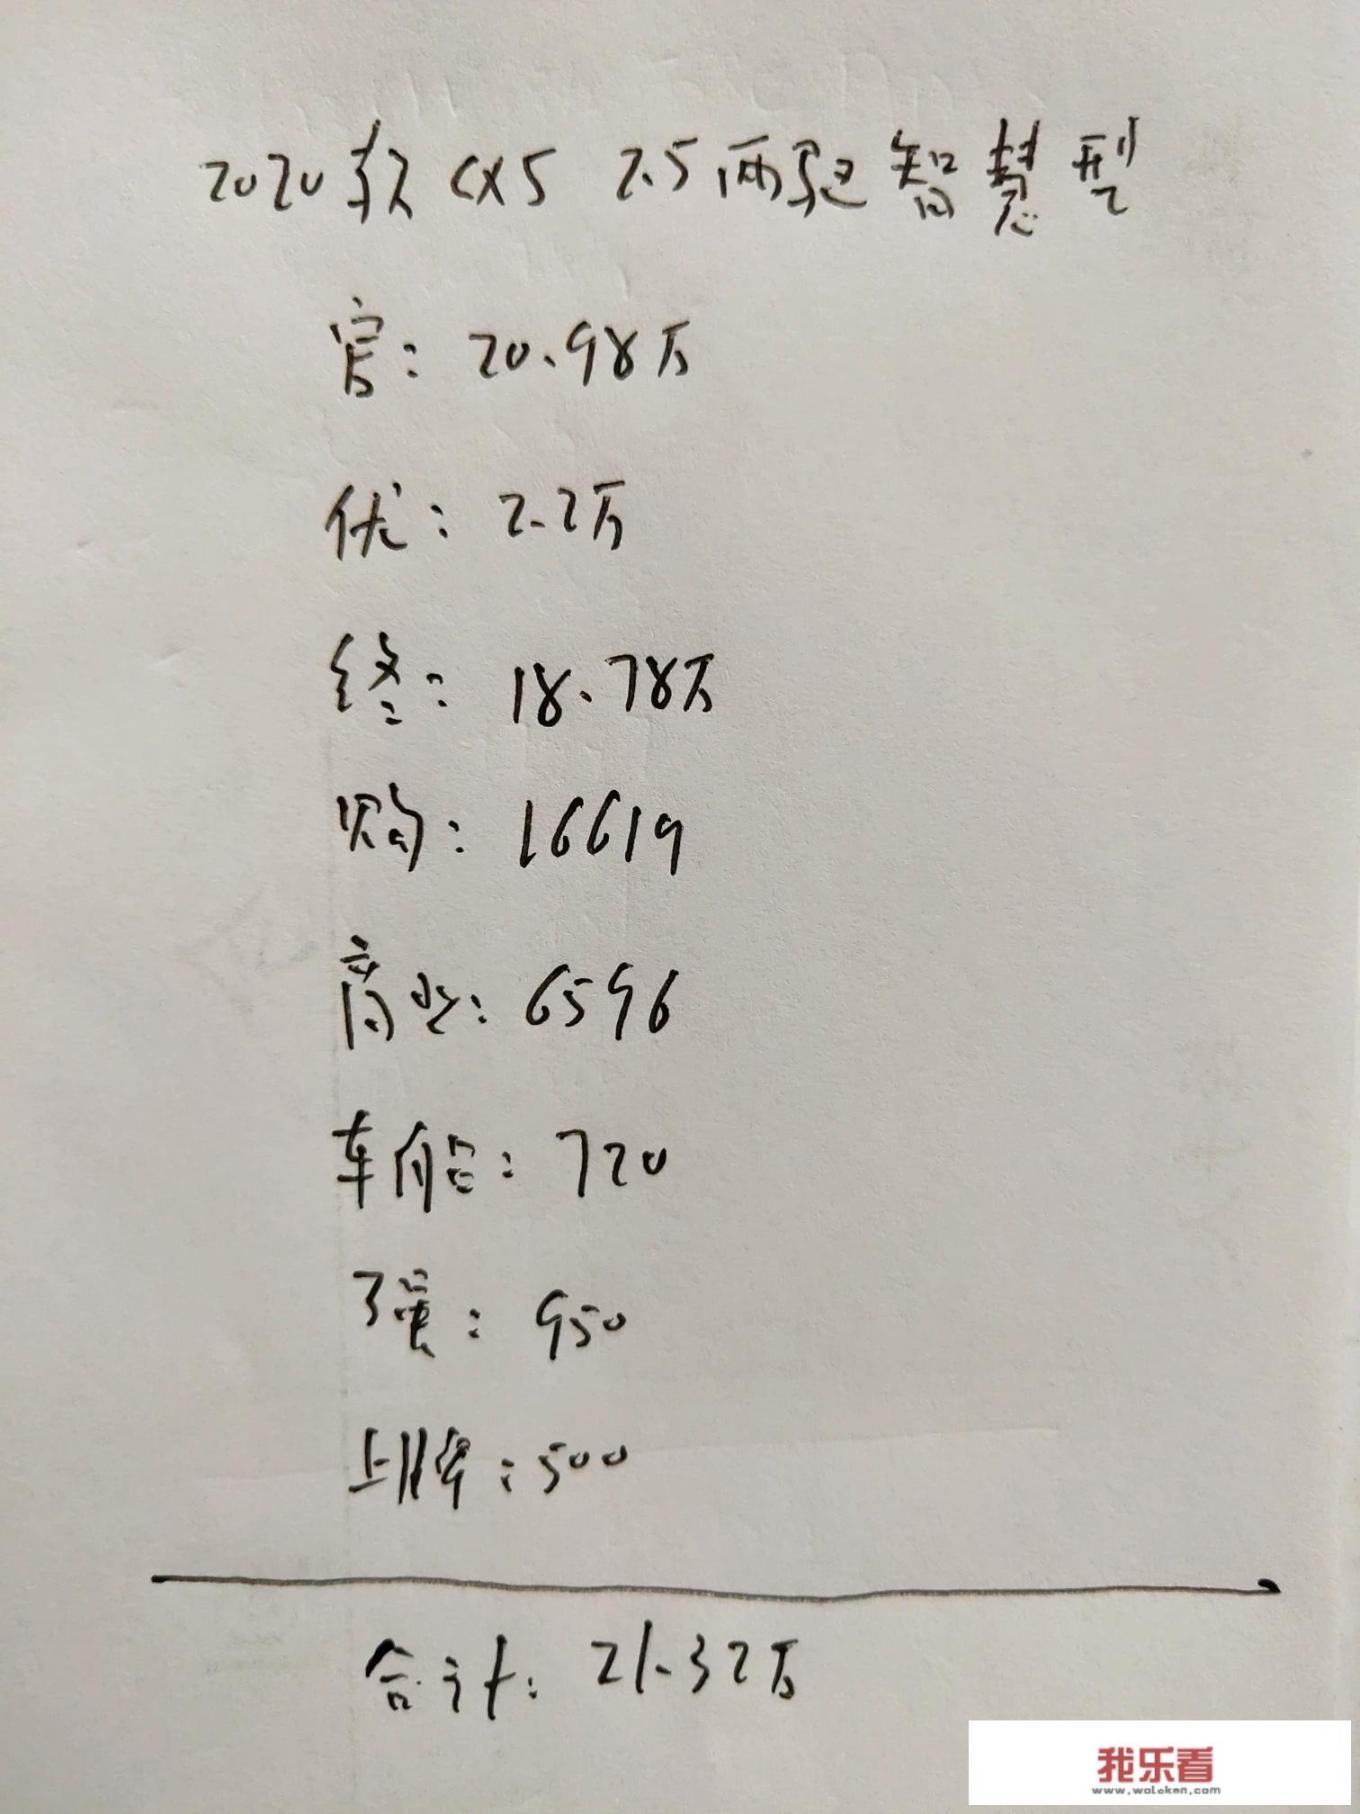 2020款 CX5 2.5两驱智慧型
官: 20.98万
优: 2.2万
终: 18.78万
购: 16619
商业: 6596
车船: 720
交强: 950
上牌: 500
合计: 21.32万
我乐看
www.woleken.com